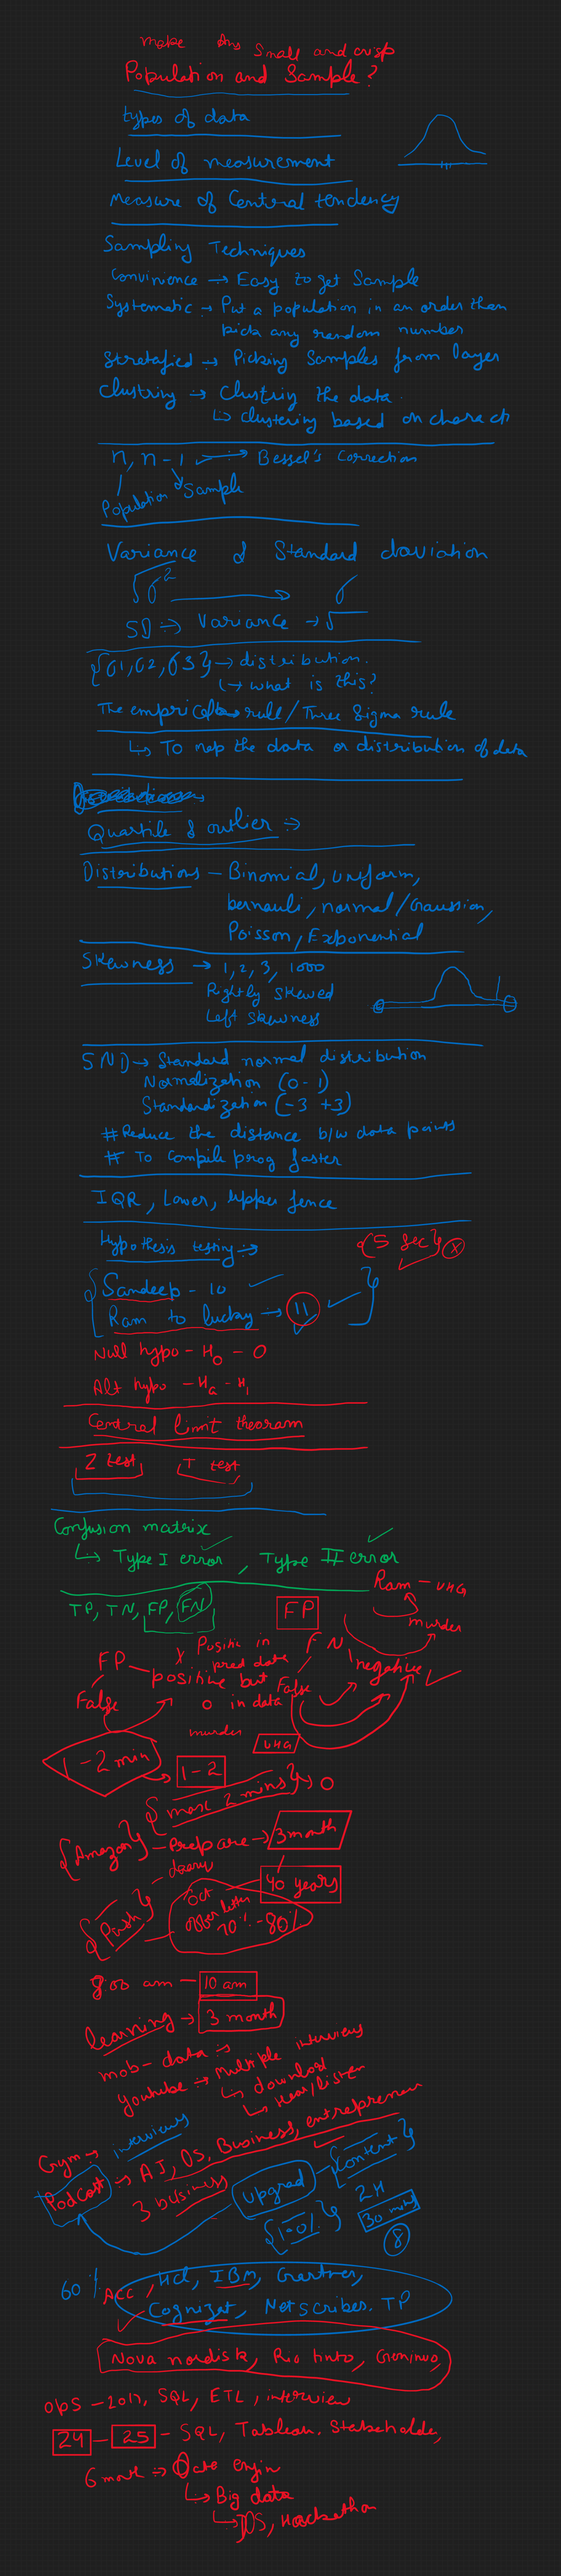 make this small and crisp
Population and Sample?
types of data
Level of measurement
measure of Central tendency
Sampling Techniques
Convinience → Easy to get Sample
Systematic → Put a population in an order then
pick any random number
Stretafied → Picking Samples from layer
Clustring → Clustring the data.
↳ clustering based on charact
n, n-1 → Bessel's Correction
Population Sample
Variance & Standard daviation
√σ² → σ
SD → Variance → √
{σ1, σ2, σ3} → distribution.
↳ what is this?
The emprical rule/Three Sigma rule
↳ To map the data or distribution of data
Quartile & outlier →
Distributions - Binomial, uniform,
bernauli, normal/Gaussian,
Poisson, Exponential
Skewness → 1, 2, 3, 1000
Rightly skewed
Left Skewness
SND → Standard normal distribution
Normalization (0-1)
Standardization (-3 +3)
# Reduce the distance b/w data points
# To Compile prog faster
IQR, Lower, upper fence
Hypothesis testing →
{5 sec} x
Sandeep - 10
Ram to lucky → 11
Null hypo - H0 - 0
Alt hypo - Ha - H1
Central limit theoram
Z test T test
Confusion matrix
↳ Type I error, Type II error
Ram - UHG
murder
TP, TN, FP, FN
FP
FP - positive but
Positive in
pred data
0 in data
False
FN
False
negative
murder
UHG
1-2 min
1-2
{max 2 mins} → 0
{Amazon} - Prepare → 3 month
40 years
{Parth}
Oct
offer letter
70% - 80%
8:00 am - 10 am
learning → 3 month
mob-data →
youtube → multiple interviews
↳ download
↳ Hear/listen
Gym → interviews
Podcast → AI, DS, Business, entrepreneur
3 business
upgrad
{Content}
{1.0%}
2H
30 mins
8
60%
ACC, Hcl, IBM, Gartner,
Cognizat, Netscribes. TP
Nova nordisk, Rio tinto,
ops - 2017, SQL, ETL, interview
24 - 25 - SQL, Tableau, Stakeholder,
6 month → Data engin
↳ Big data
↳ DS, Hackathon